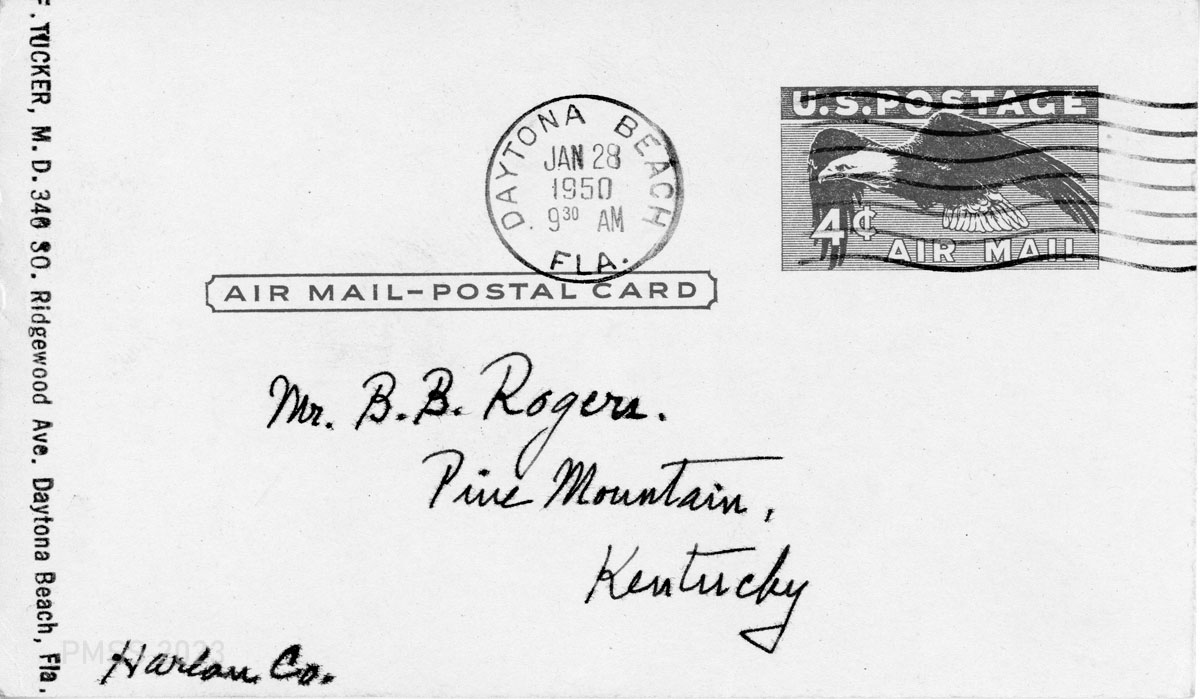 F. TUCKER, M. D. 346 SO. Ridgewood Ave. Daytona Beach, Fla.
DAYTONA BEACH
JAN 28
1950
9³⁰ AM
FLA.
U.S.POSTAGE
4¢
AIR MAIL
AIR MAIL–POSTAL CARD
Mr. B. B. Rogers.
Pine Mountain,
Kentucky
Harlan Co.
PMSS 2023